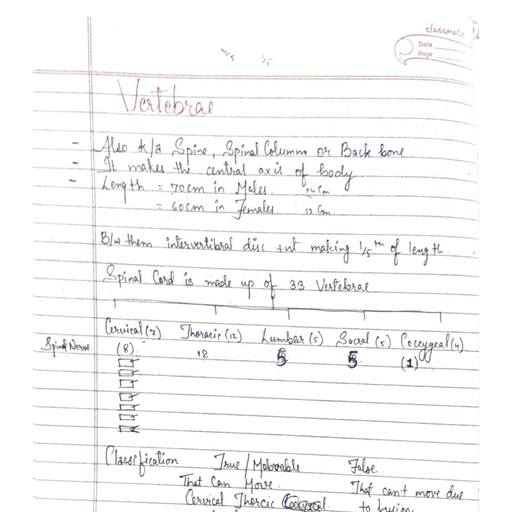 classmate
Date
Page
1/5
Vertebrae
- Also k/a Spine, Spinal Column or Back bone
- It makes the central axis of body
- Length = 70cm in Males. 14 Cm
= 60cm in Females 12 Cm
B/w them intervertibral disc +nt making 1/5th of length
Spinal Cord is made up of 33 Vertebrae
Cervical (7) Thoracic (12) Lumbar (5) Sacral (5) Coccygeal (4)
Spinal Nerve (8) 12 5 5 (1)
Classification True / Moborable False
That Can Move. That can't move due
Cervical Thorcic to fusion